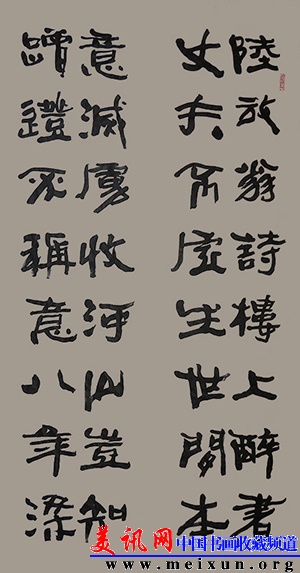 陸放翁詩樓上醉書
丈夫不虛生世間本
意滅虜收河山豈知
蹭蹬不稱意八年梁
美讯网 中国书画收藏频道
www.meixun.org